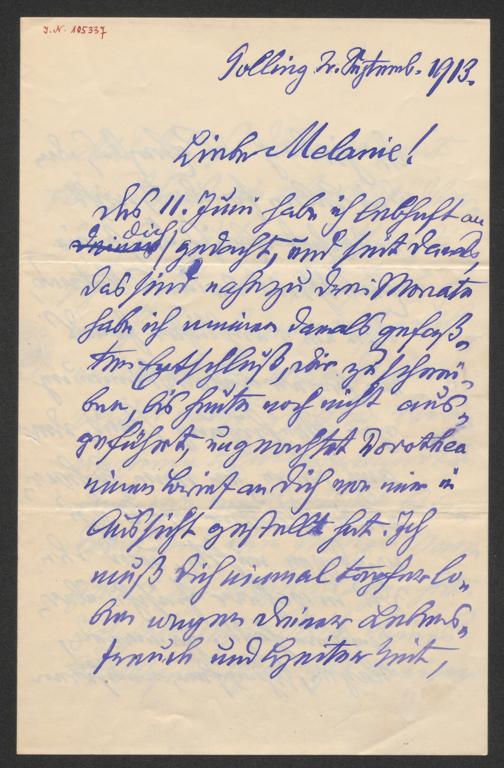 J.N. 105337
Golling 2. Septemb. 1913.
Liebe Melanie!
Des 11. Juni habe ich lebhaft an
deiner dich gedacht, und seit damals,
das sind nahezu drei Monate
habe ich meinen damals gefaß-
ten Entschluß, dir zu schrei-
ben, bis heute noch nicht aus-
geführt, ungeachtet Dorothea
einen Brief an dich von mir in
Aussicht gestellt hat. Ich
muß Dich einmal tapfer lo-
ben wegen deiner Lebens-
freude und Heiterkeit,